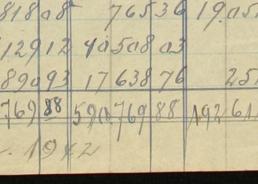 818 08 76536 19.05
12912 40508 03
89093 17638 76 25
769 88 590.769 88 192 61
1942